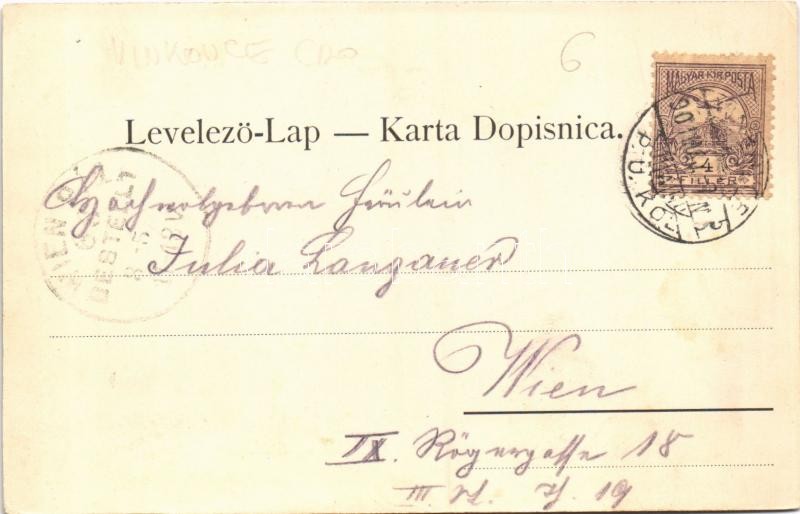 VINKOVCE CRO
6
MAGYAR KIR. POSTA
4
FILLER
Levelezö-Lap — Karta Dopisnica.
Hochwolgeboren Fräulein
WIEN
BESTELLT
Julia Langauer
Wien
IX. Rögergasse 18
III. St. T. 19